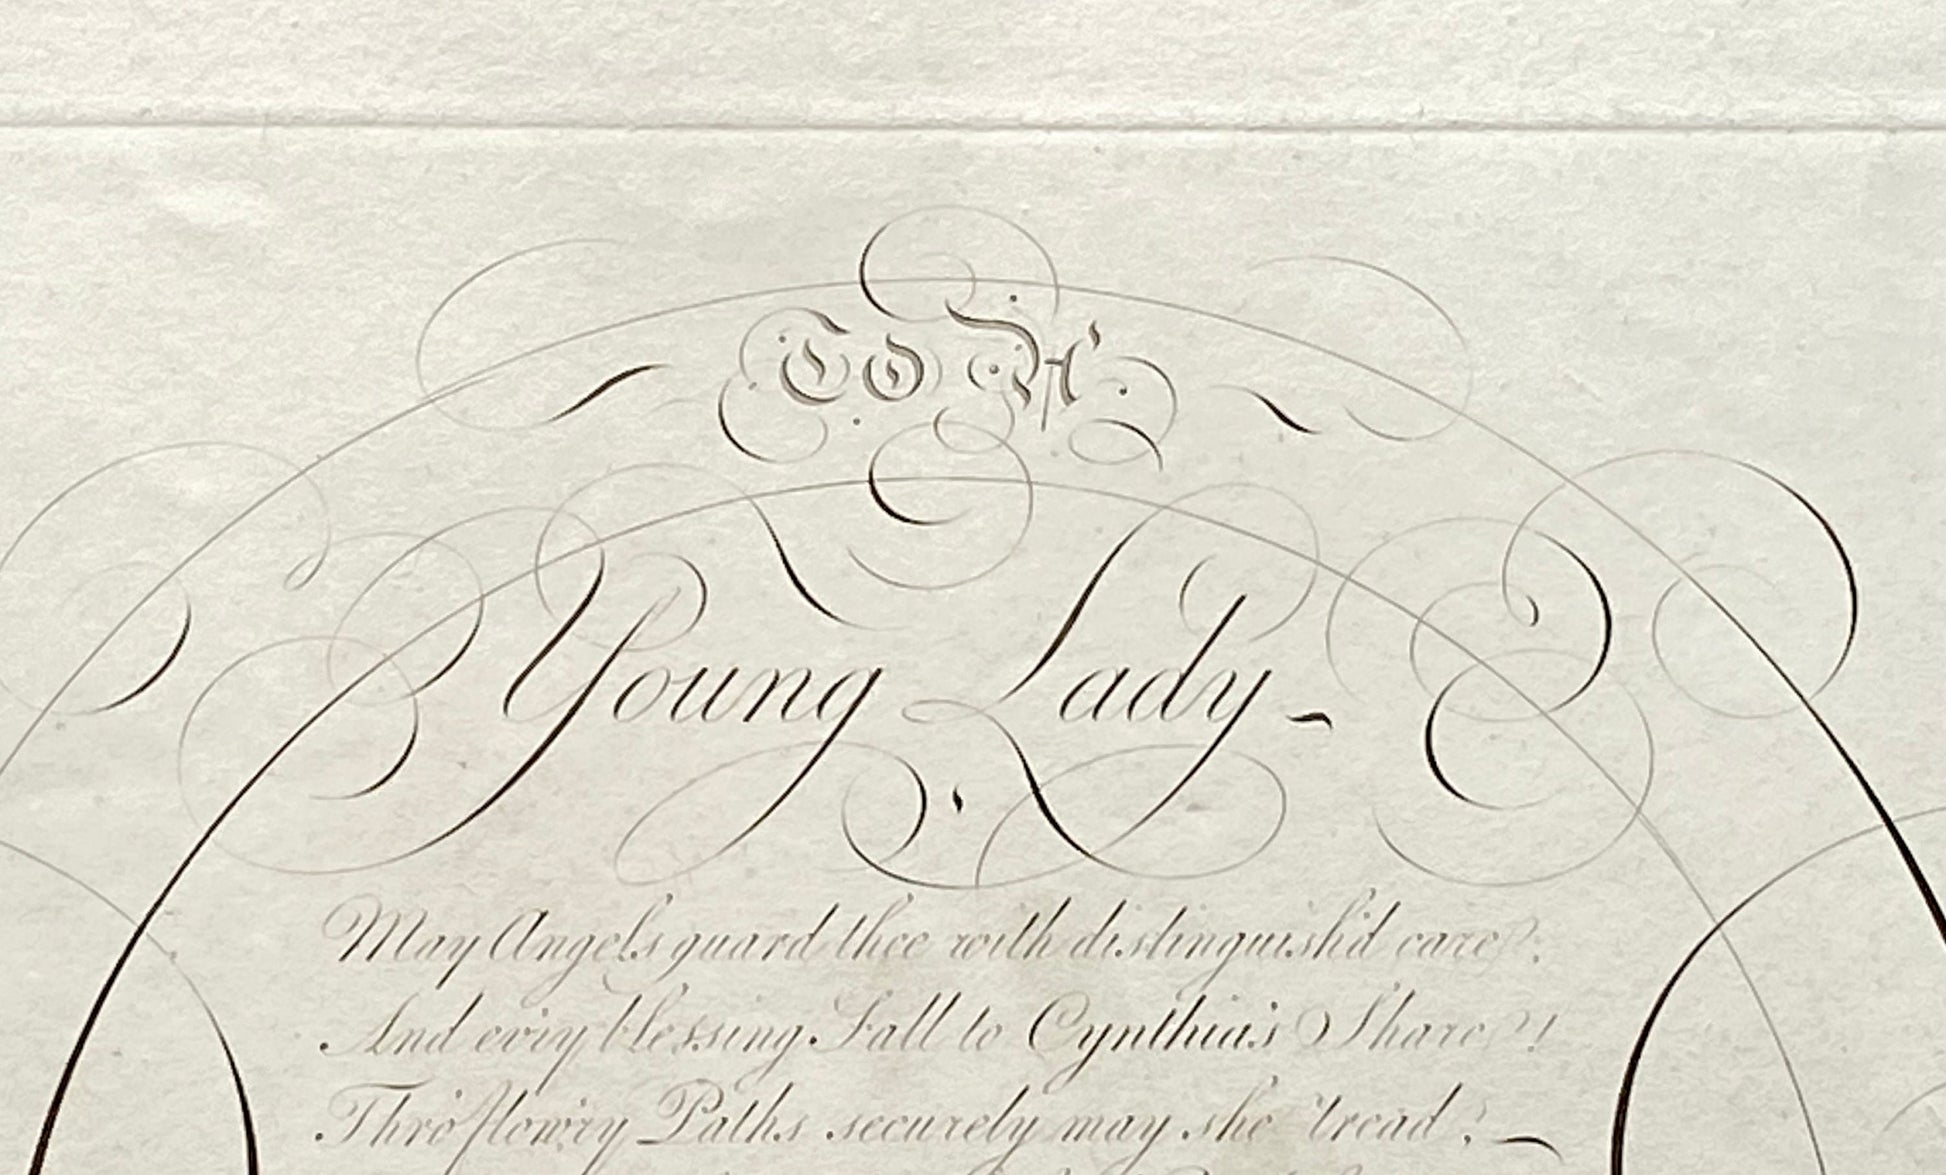 To A
Young Lady
May Angels guard thee with distinguish'd care
And ev'ry blessing Fall to Cynthia's Share!
Thro' flow'ry Paths securely may she tread!